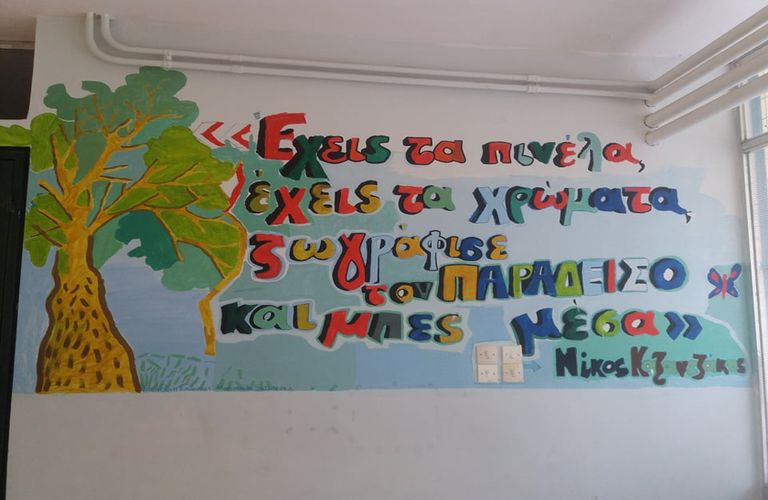 «Έχεις τα πινέλα,
έχεις τα χρώματα,
ζωγράφισε
τον ΠΑΡΑΔΕΙΣΟ
και μπες μέσα»
Νίκος Καζαντζάκης